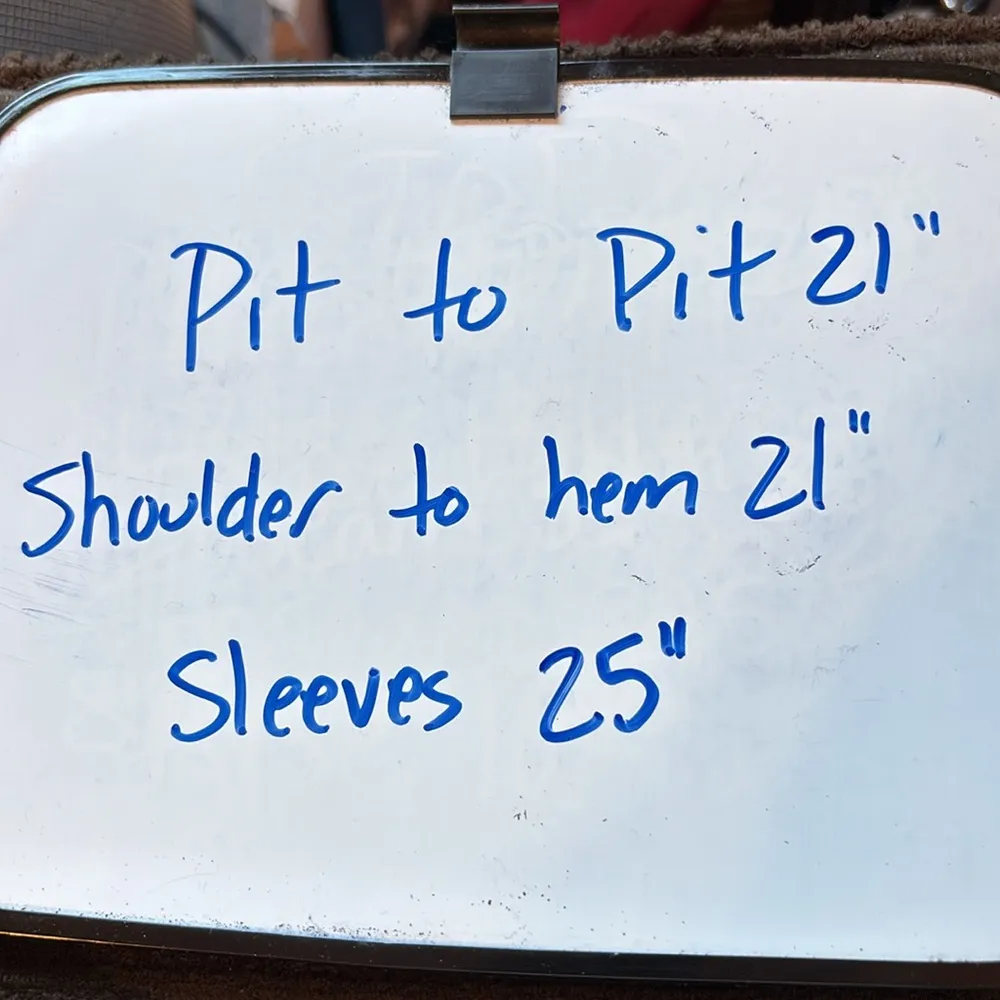 Pit to Pit 21"
Shoulder to hem 21"
Sleeves 25"